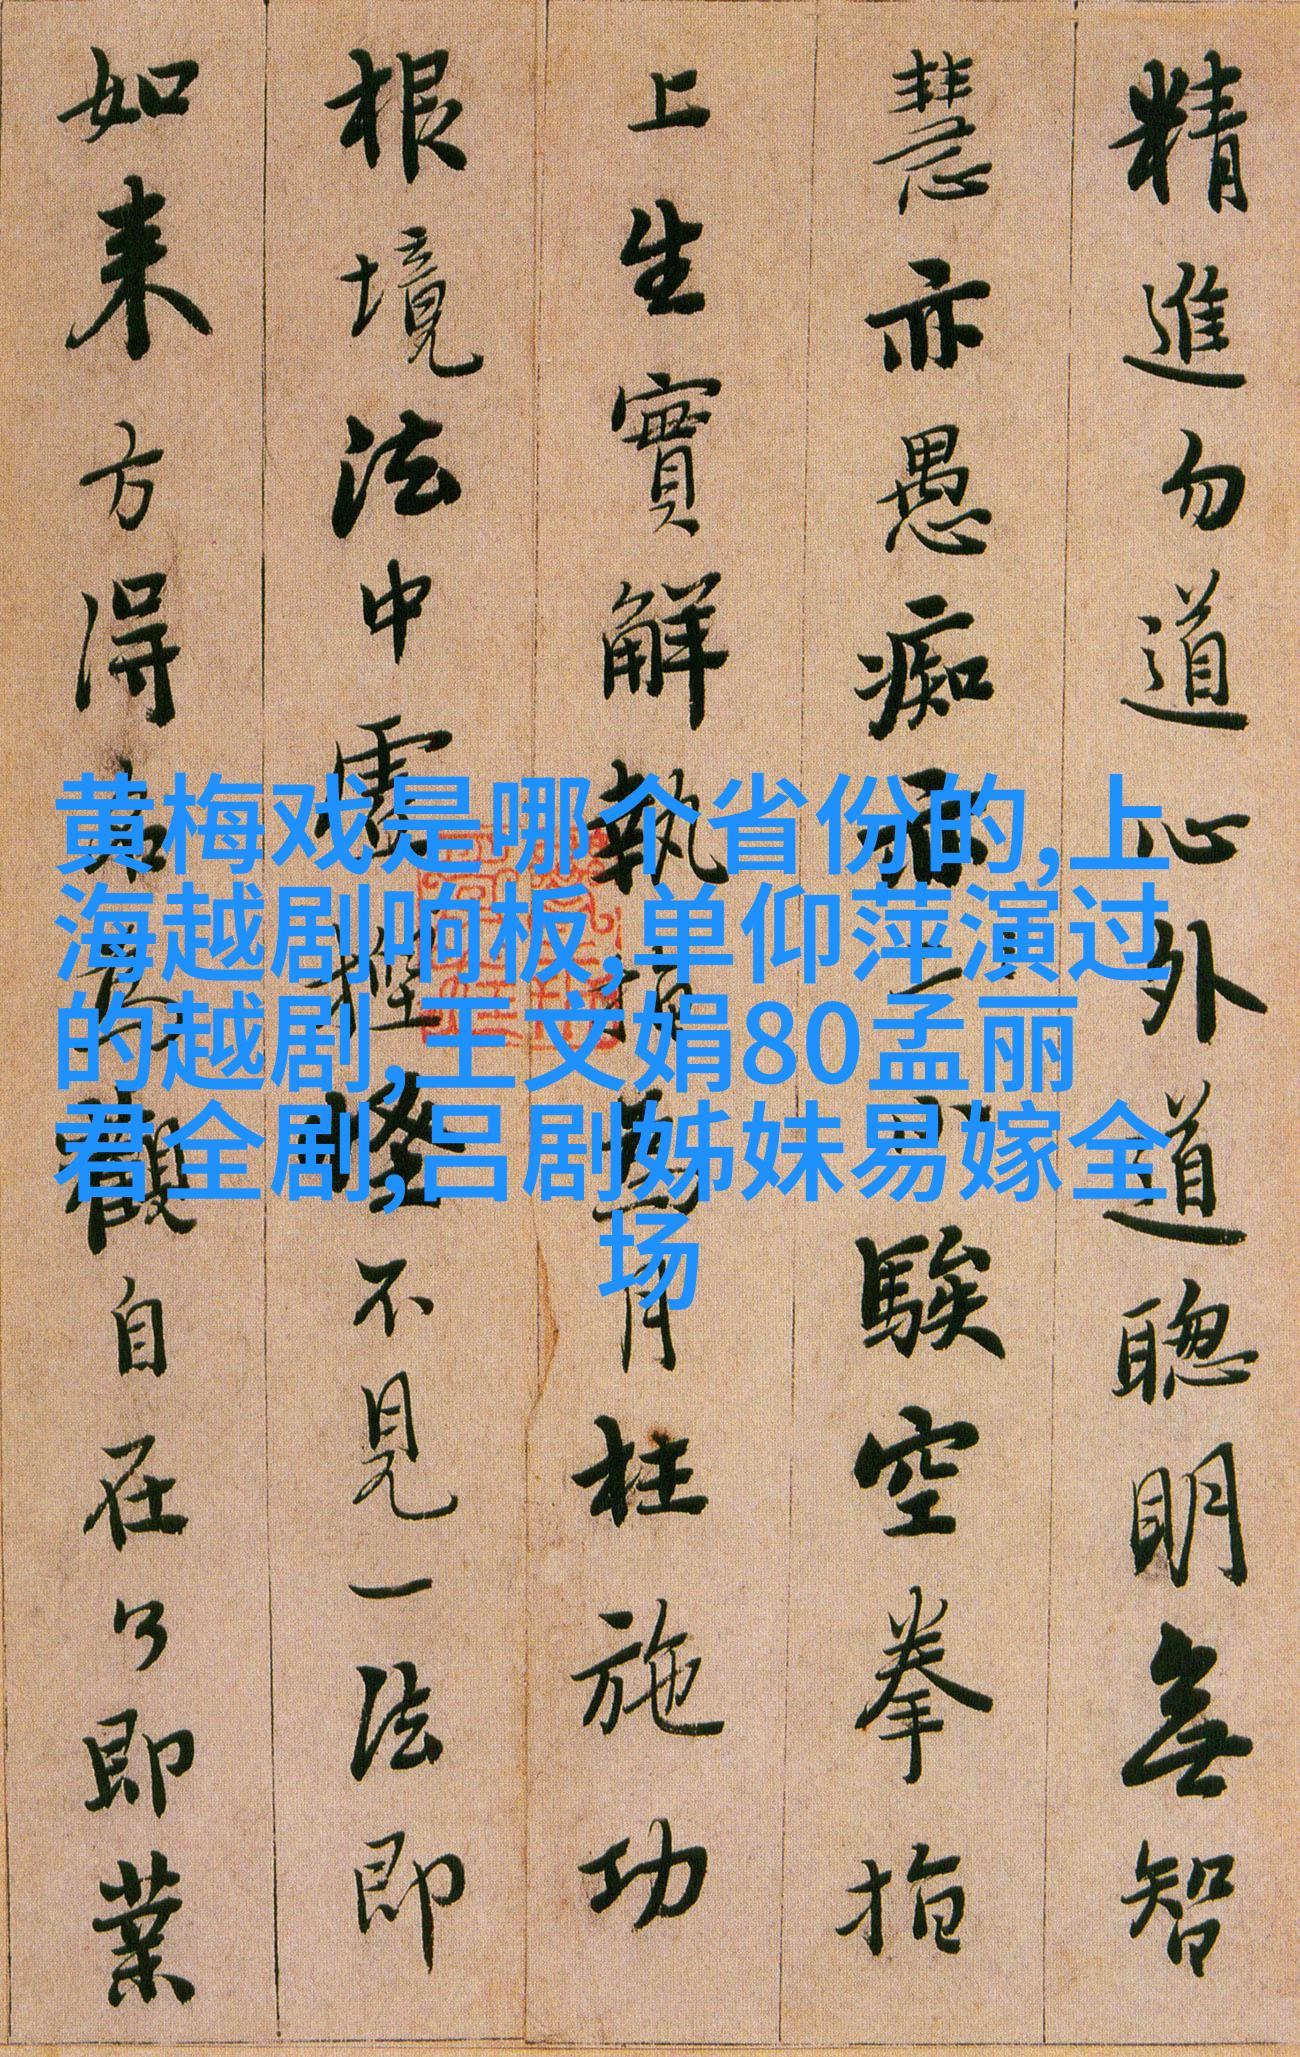 黄梅戏是哪个省份的,上
海越剧响板,单仰萍演过
的越剧,王文娟80孟丽
君全剧,吕剧姊妹易嫁全
场
精進勿道心外道聰明無智
慧亦愚痴騃空拳指
上生實解執月枉施功
根境法中虛捏怪不見一法即
如来方得觀自在了即業